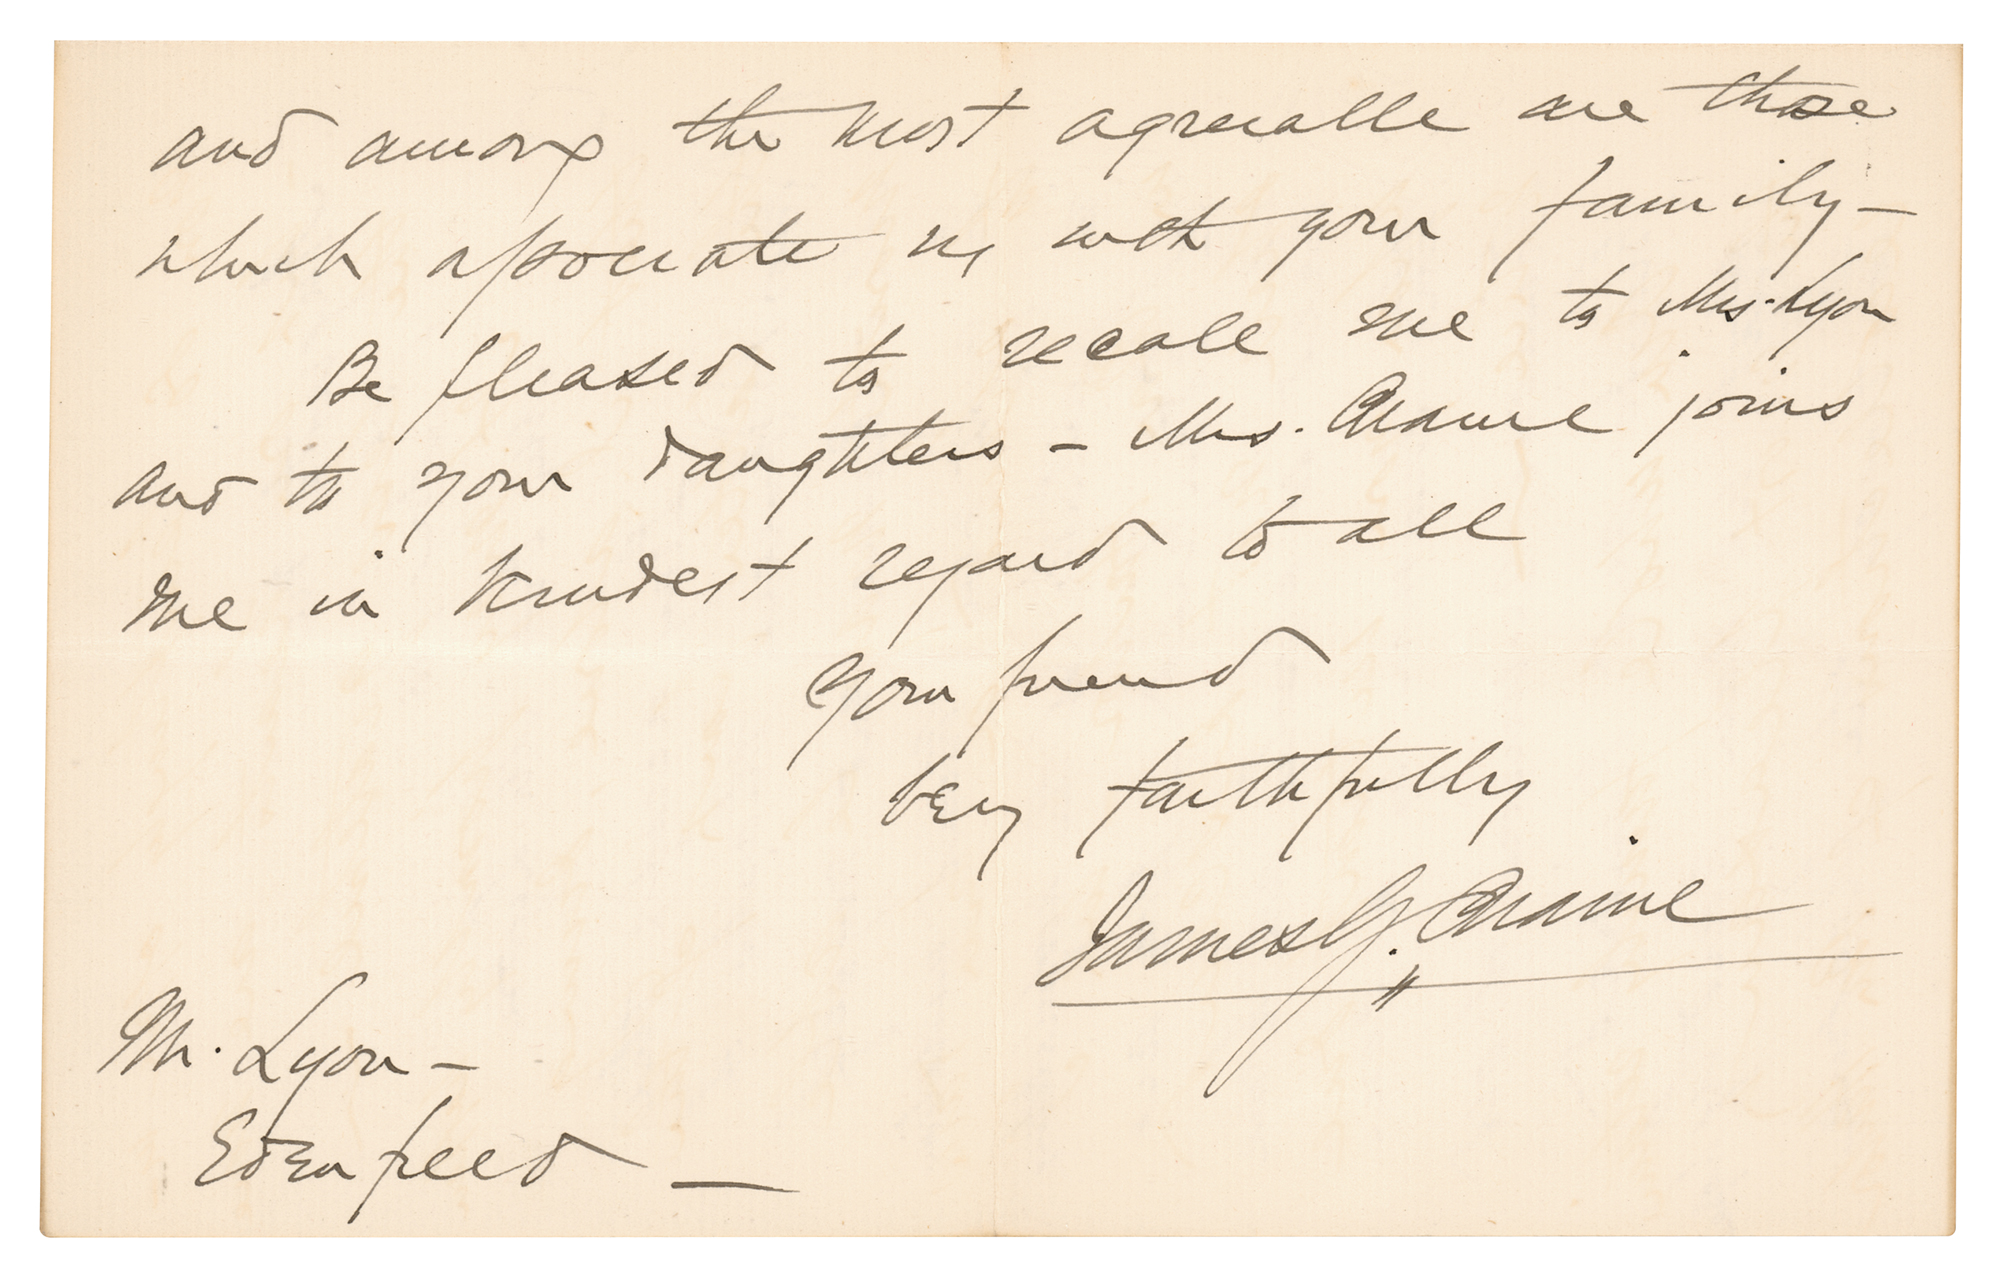 and among the most agreeable are those
which associate us with your family—
Be pleased to recall me to Mrs. Lyon
and to your daughters — Mrs. Blaine joins
me in kindest regard to all
Your friend
very faithfully
James G. Blaine
Mr. Lyon —
Edenfield —